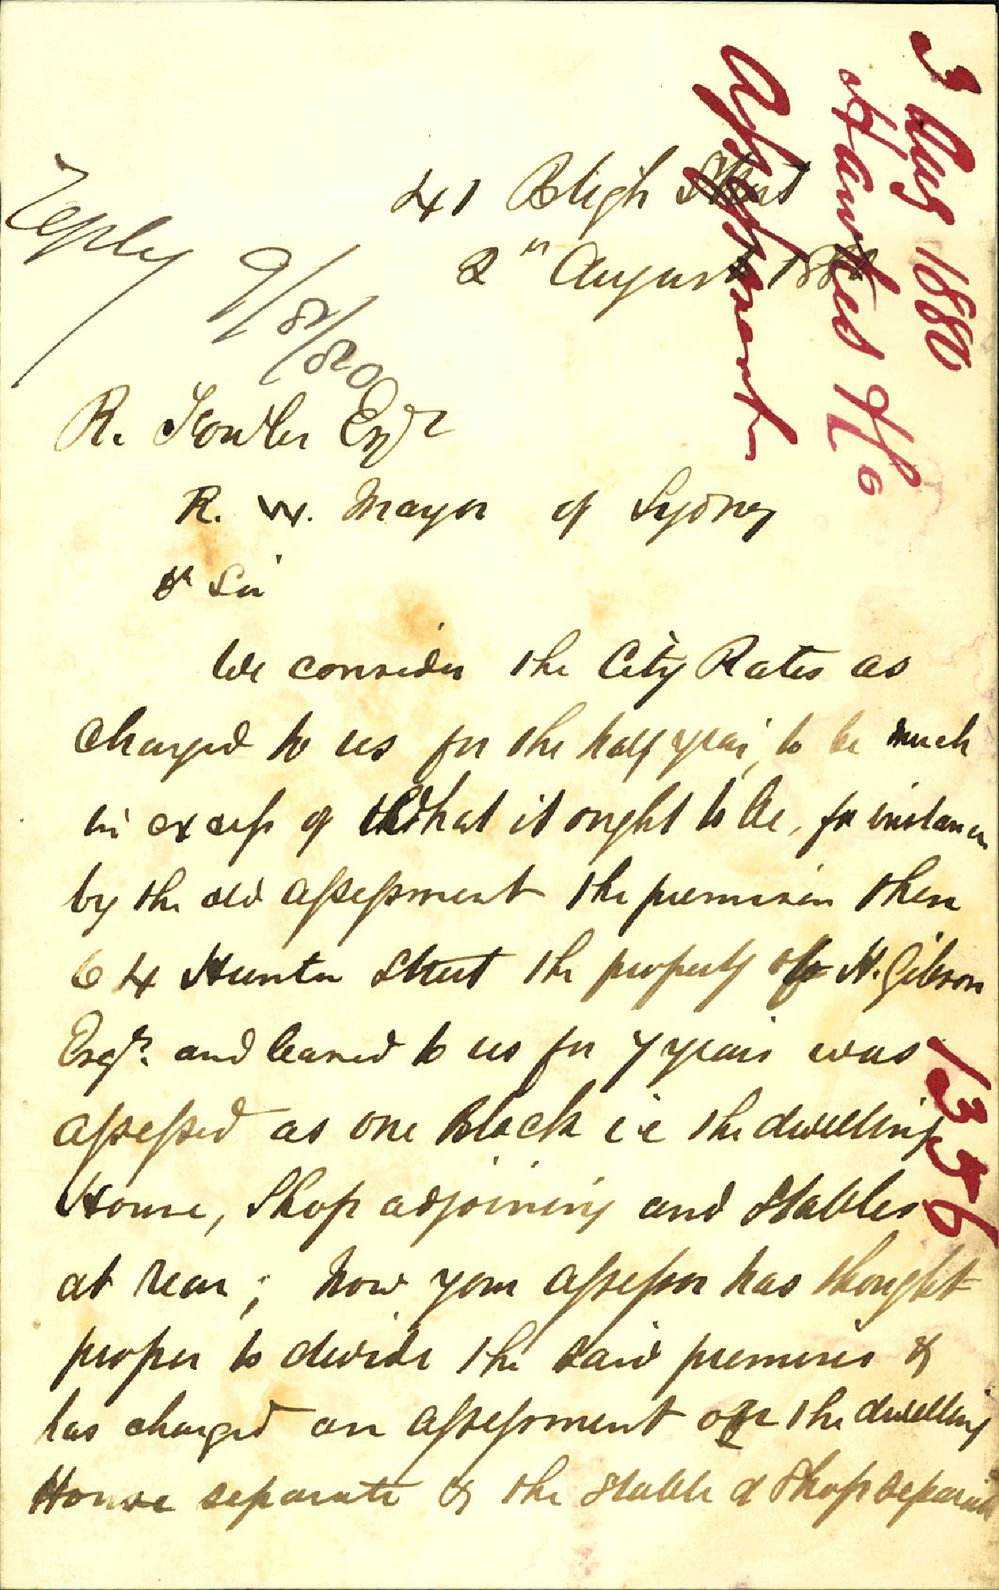 3 Aug 1880
Hawkes H/o
Assessment
Reply 9/8/80
41 Bligh Street
2nd August 1880
R. Fowler Esqr
R. W. Mayor of Sydney
Dr Sir
We consider the City Rates as
charged to us for the half year, to be much
in excess of what it ought to be, for instance
by the old assessment the premises then
64 Hunter Street the property of H. Gibson
Esqr. and leased to us for 7 years was
assessed as one Block i e the dwelling
House, Shop adjoining and Stables
at rear; Now your assessor has thought
proper to divide the said premises &
has charged an assessment on the dwelling
House separate & the stable & Shop separate
1356